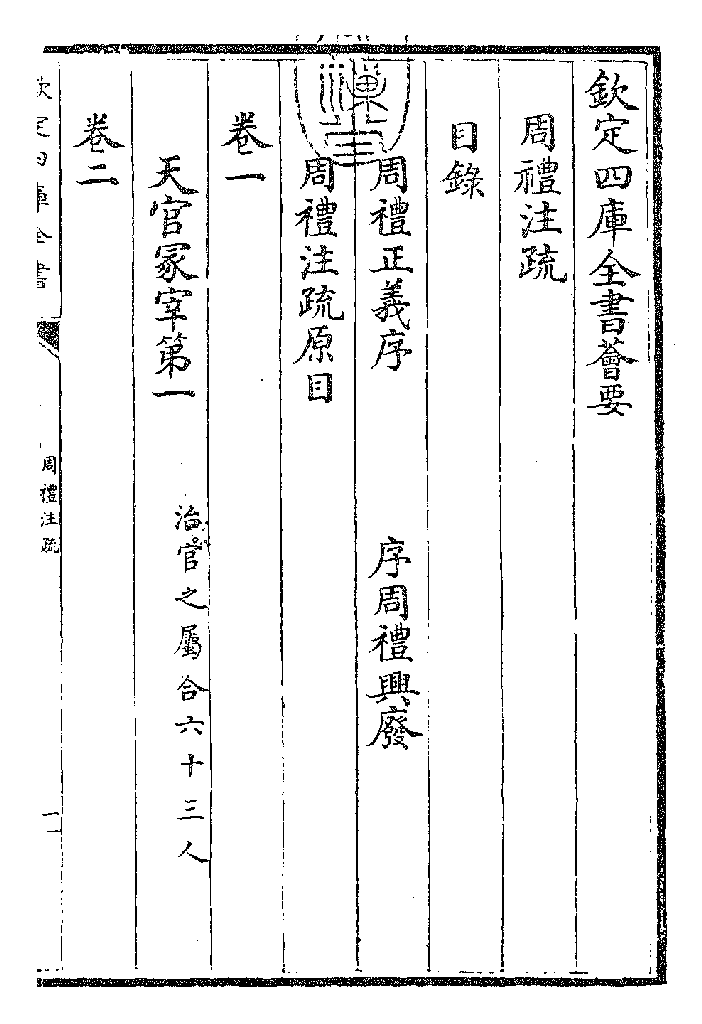 欽定四庫全書薈要
周禮注疏
目錄
周禮正義序 序周禮興廢
周禮注疏原目
卷一
天官冢宰第一 治官之屬合六十三人
卷二
欽定四庫全書 周禮注疏 一